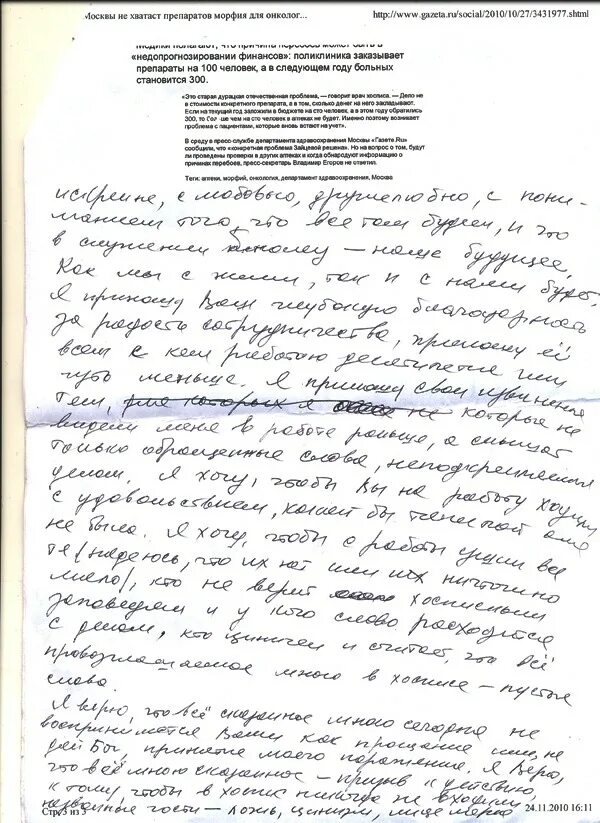 Москвы не хватаст препаратов морфия для онколог... http://www.gazeta.ru/social/2010/10/27/3431977.shtml
Медики полагают, что причина перебоев может быть в
«недопрогнозировании финансов»: поликлиника заказывает
препараты на 100 человек, а в следующем году больных
становится 300.
«Это старая дурацкая отечественная проблема, — говорит врач хосписа. — Дело не
в стоимости конкретного препарата, а в том, сколько денег на него закладывают.
Если на текущий год заложили в бюджете на сто человек, а в этом году обратились
300, то больше чем на сто человек в аптеках не будет. Именно поэтому возникает
проблема с пациентами, которые вновь встают на учет».
В среду в пресс-службе департамента здравоохранения Москвы «Газете.Ru»
сообщили, что «конкретная проблема Зайцевой решена». Но на вопрос о том, будут
ли проведены проверки в других аптеках и когда обнародуют информацию о
причинах перебоев, пресс-секретарь Владимир Егоров не ответил.
Теги: аптеки, морфий, онкология, департамент здравоохранения, Москва
искренне, с любовью, дружелюбно, с пони-
манием того, что все там будем, и что
в служении хоспису — наше будущее.
Как мы с ними, так и с нами будет.
Я приношу Вам глубокую благодарность
за радость сотрудничества, приношу её
всем с кем работаю десятилетие или
чуть меньше. Я приношу свои извинения
тем, для которых я не которые не
видели меня в работе раньше, а слышат
только обращенные слова, неподкрепленные
делом. Я хочу, чтобы Вы на работу ходили
с удовольствием, какой бы тяжелой она
не была. Я хочу, чтобы с работы ушли все
те (надеюсь, что их нет или их ничтожно
мало), кто не верит хосписным
заповедям и у кого слово расходится
с делом, кто циничен и считает, что всё
провозглашаемое мною в хосписе — пустые
слова.
Я верю, что всё сказанное мною сегодня не
воспринимается Вами как прощание или, не
дай Бог, принятие моего поражения. Я верю,
что всё мною сказанное — призыв к действию,
к тому, чтобы в хоспис никогда не входили
незваные гости — ложь, цинизм, лицемерие
Стр. 3 из 3 24.11.2010 16:11